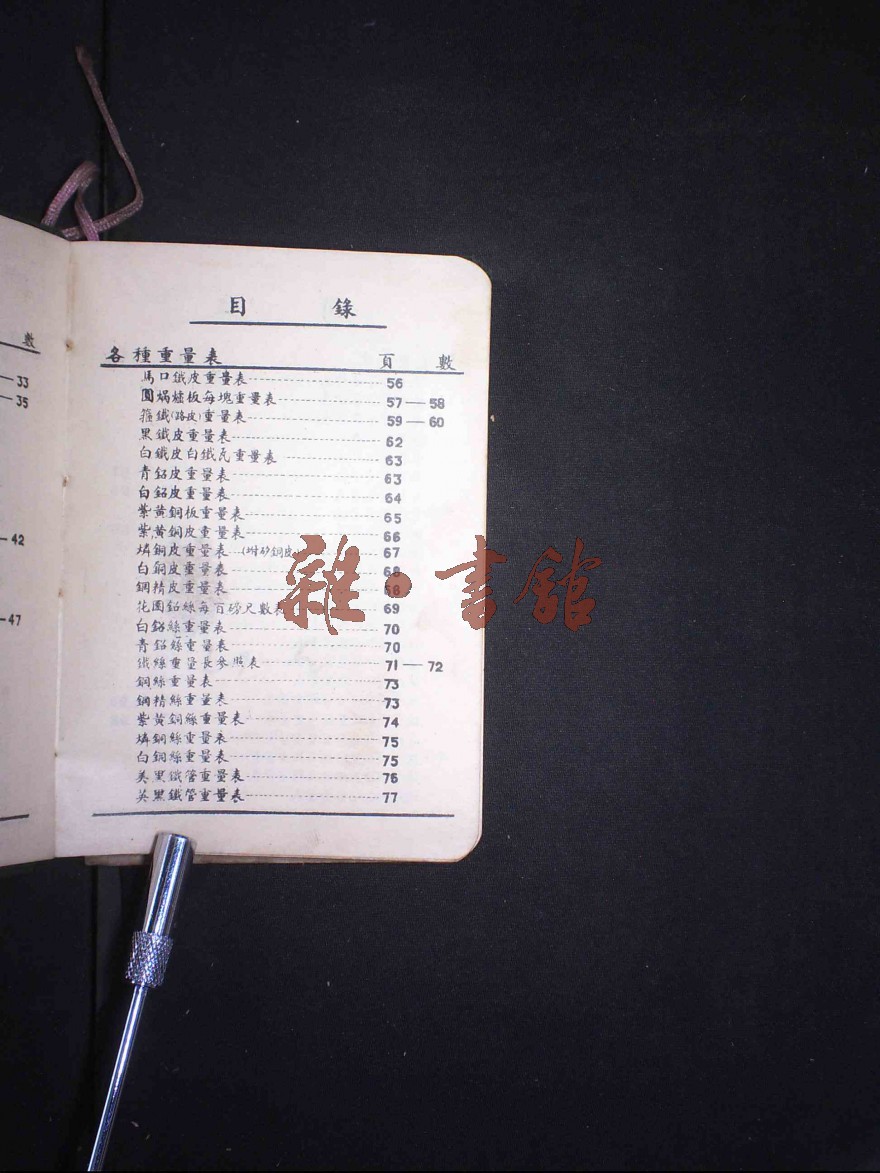 數
33
35
42
47
目 錄
各種重量表 頁 數
馬口鐵皮重量表 56
圓焗爐板每塊重量表 57—58
箍鐵(路皮)重量表 59—60
黑鐵皮重量表 62
白鐵皮白鐵瓦重量表 63
青鉛皮重量表 63
白鉛皮重量表 64
紫黃銅板重量表 65
紫黃銅皮重量表 66
燐銅皮重量表 銅皮 67
白銅皮重量表 68
鋼精皮重量表 68
花園鉛絲每百磅尺數表 69
白鉛絲重量表 70
青鉛絲重量表 70
鐵絲重量長參照表 71—72
銅絲重量表 73
鋼精絲重量表 73
紫黃銅絲重量表 74
燐銅絲重量表 75
白銅絲重量表 75
美黑鐵管重量表 76
英黑鐵管重量表 77
雜·書館